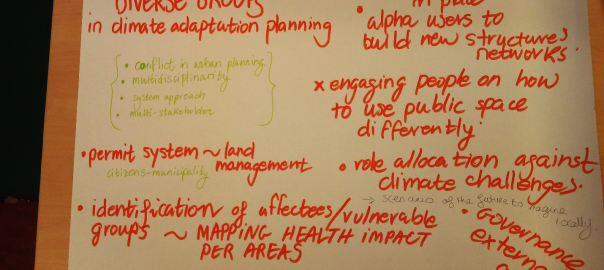 DIVERSE GROUPS
in climate adaptation planning
• conflict in urban planning
• multidisciplinarity
• system approach
• multi-stakeholder
• permit system ~ land
management
citizens-municipality
• identification of affectees/vulnerable
groups ~ MAPPING HEALTH IMPACT
PER AREAS
in place
• alpha users to
build new structures
networks.
x engaging people on how
to use public space
differently.
• role allocation against
climate challenges.
→ scenarios of the future to imagine
locally.
• Governance